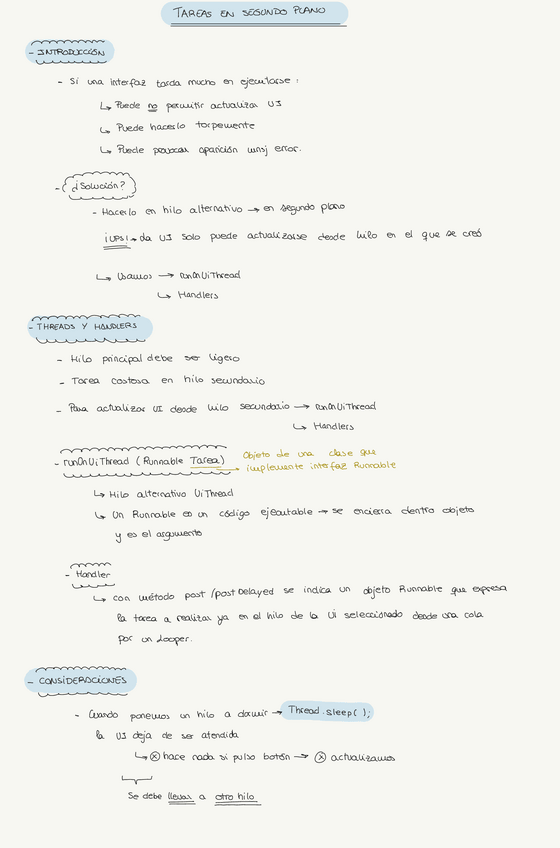 TAREAS EN SEGUNDO PLANO
- INTRODUCCIÓN
- Si una interfaz tarda mucho en ejecutarse:
↳ Puede no permitir actualizar UI
↳ Puede hacerlo torpemente
↳ Puede provocar aparición mnsj error.
- ¿Solución?
- Hacerlo en hilo alternativo → en segundo plano
¡UPS! → La UI solo puede actualizarse desde hilo en el que se creó
↳ Usamos → runOnUiThread
↳ Handlers
- THREADS Y HANDLERS
- Hilo principal debe ser ligero
- Tarea costosa en hilo secundario
- Para actualizar UI desde hilo secundario → runOnUiThread
↳ Handlers
- runOnUiThread (Runnable Tarea) → Objeto de una clase que
implemente interfaz Runnable
↳ Hilo alternativo UiThread
↳ Un Runnable es un código ejecutable → se encierra dentro objeto
y es el argumento
- Handler
↳ con método post/postDelayed se indica un objeto Runnable que expresa
la tarea a realizar ya en el hilo de la UI seleccionado desde una cola
por un Looper.
- CONSIDERACIONES
- Cuando ponemos un hilo a dormir → Thread.sleep();
la UI deja de ser atendida
↳ ⓧ hace nada si pulso botón → ⓧ actualizamos
Se debe llevar a otro hilo